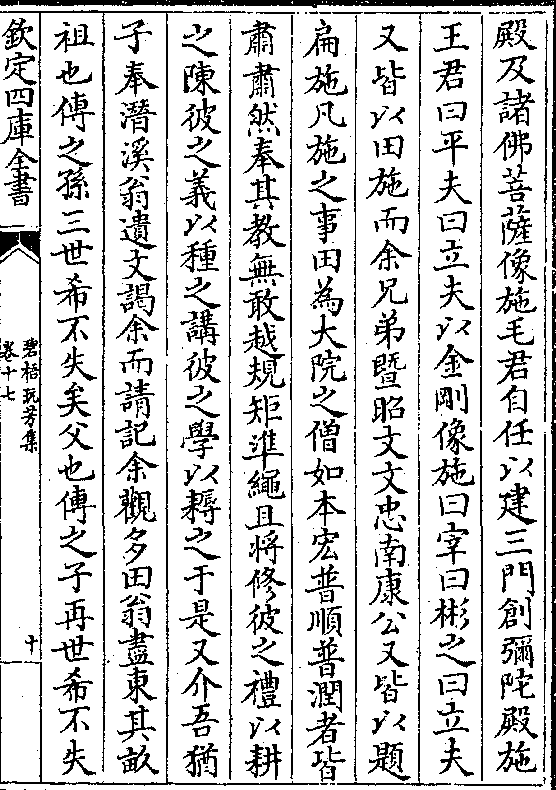 殿及諸佛菩薩像施毛君自任以建三門創彌陀殿施
王君曰平夫曰立夫以金剛像施曰宰曰彬之曰立夫
又皆以田施而余兄弟暨昭文文忠南康公又皆以題
扁施凡施之事田為大院之僧如本宏普順普潤者皆
肅肅然奉其教無敢越規矩準繩且將修彼之禮以耕
之陳彼之義以種之講彼之學以耨之于是又介吾猶
子奉潛溪翁遺文謁余而請記余觀多田翁盡東其畝
祖也傳之孫三世希不失矣父也傳之子再世希不失
欽定四庫全書
碧梧玩芳集
卷十七
十